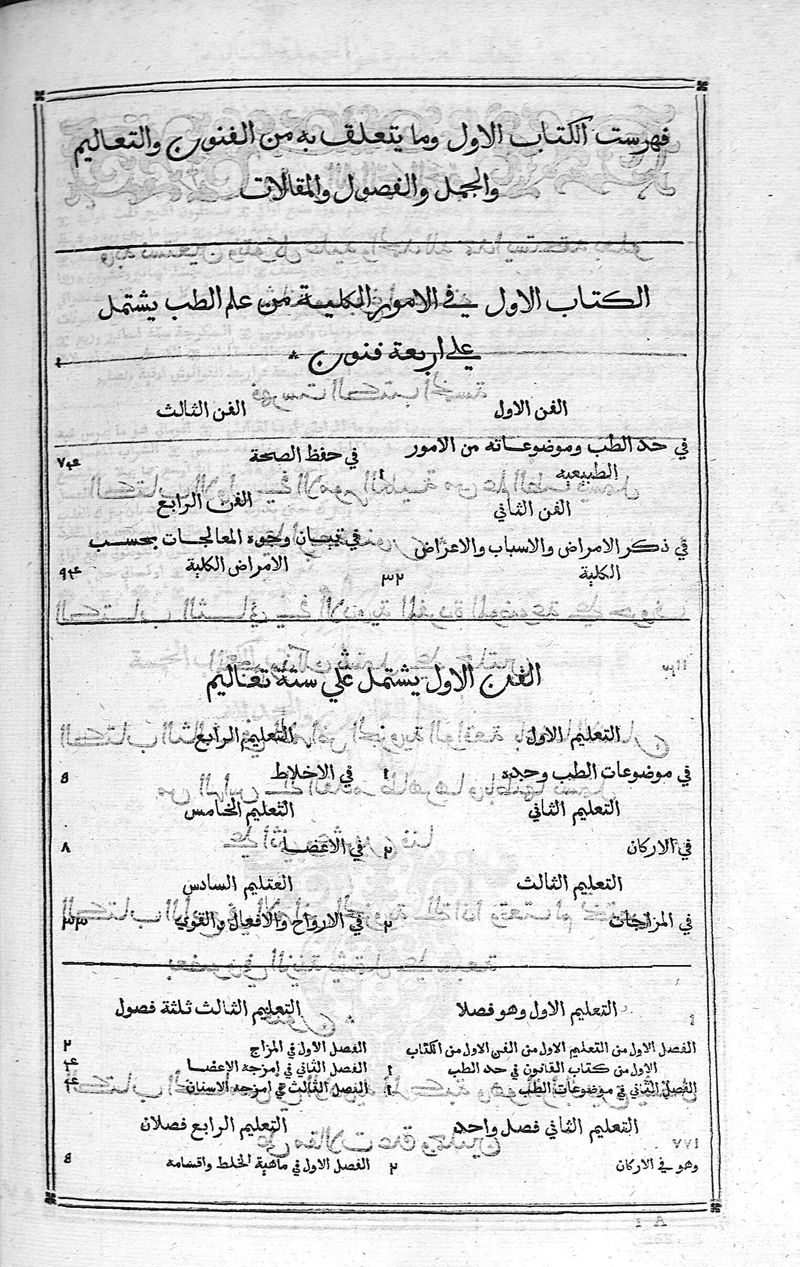 فهرست الكتاب الاول وما يتعلق به من الفنون والتعاليم
والجمل والفصول والمقالات
الكتاب الاول في الامور الكلية من علم الطب يشتمل
علي اربعة فنون
الفن الاول
في حد الطب وموضوعاته من الامور
الطبيعيه ١
الفن الثاني
في ذكر الامراض والاسباب والاعراض
الكلية ٣٢
الفن الثالث
في حفظ الصحة ٧٤
الفن الرابع
في تبيان وجوه المعالجات بحسب
الامراض الكلية ٩٤
الفن الاول يشتمل علي ستة تعاليم
التعليم الاول
في موضوعات الطب وحده ١
التعليم الثاني
في الاركان ٢
التعليم الثالث
في المزاجات ٢
التعليم الرابع
في الاخلاط ٥
التعليم الخامس
في الاعضا ٨
العتليم السادس
في الارواح والافعال والقوي ٣٣
التعليم الاول وهو فصلا
الفصل الاول من التعليم الاول من الفن الاول من الكتاب
الاول من كتاب القانون في حد الطب ١
الفصل الثاني في موضوعات الطب ١
التعليم الثاني فصل واحد
وهو في الاركان ٢
التعليم الثالث ثلثة فصول
الفصل الاول في المزاج ٢
الفصل الثاني في امزجة الاعضا ٤
الفصل الثالث في امزجة الاسنان ٤
التعليم الرابع فصلان
الفصل الاول في ماهية الخلط واقسامه ٥